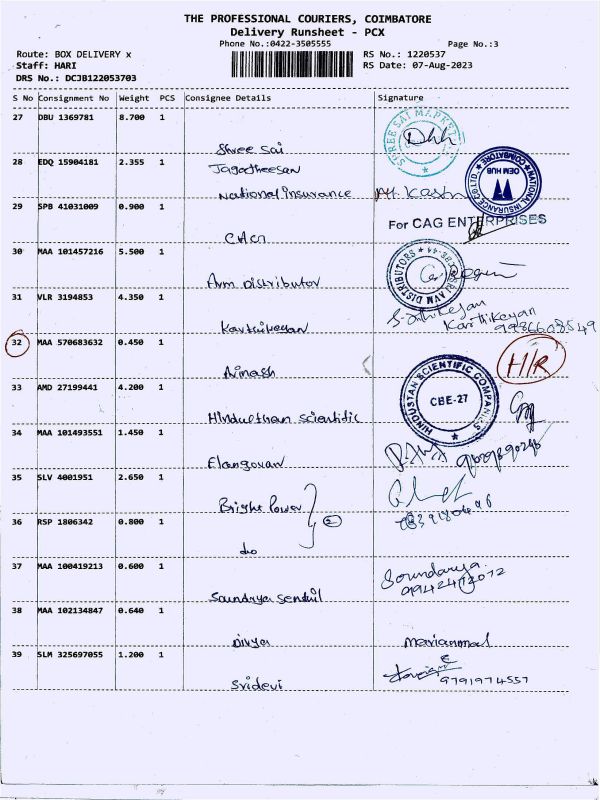 THE PROFESSIONAL COURIERS, COIMBATORE
Delivery Runsheet - PCX
Phone No.:0422-3505555 Page No.:3
Route: BOX DELIVERY x RS No.: 1220537
Staff: HARI RS Date: 07-Aug-2023
DRS No.: DCJB122053703
S No Consignment No Weight PCS Consignee Details Signature
27 DBU 1369781 8.700 1
Shree Sai
28 EDQ 15904181 2.355 1 Jagadheesan
National Insurance
29 SPB 41031009 0.900 1 For CAG ENTERPRISES
CAG
30 MAA 101457216 5.500 1
Avm Distributor
31 VLR 3194853 4.350 1
Karthikeyan Karthikeyan
32 MAA 570683632 0.450 1 H/R
Avinash
33 AMD 27199441 4.200 1 HINDUSTAN SCIENTIFIC COMPANY CBE-27
Hindusthan scientific
34 MAA 101493551 1.450 1
Elangovan
35 SLV 4001951 2.650 1
Bright Power
36 RSP 1806342 0.800 1 2
do
37 MAA 100419213 0.600 1 Soundarya
Soundrya Senthil
38 MAA 102134847 0.640 1
Divya Mariammal
39 SLM 325697055 1.200 1
Sridevi 9791974557